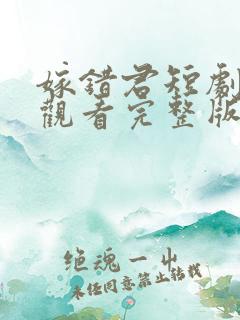 嫁錯君短劇
觀看完整版
绝魂一出
未经同意禁止转载